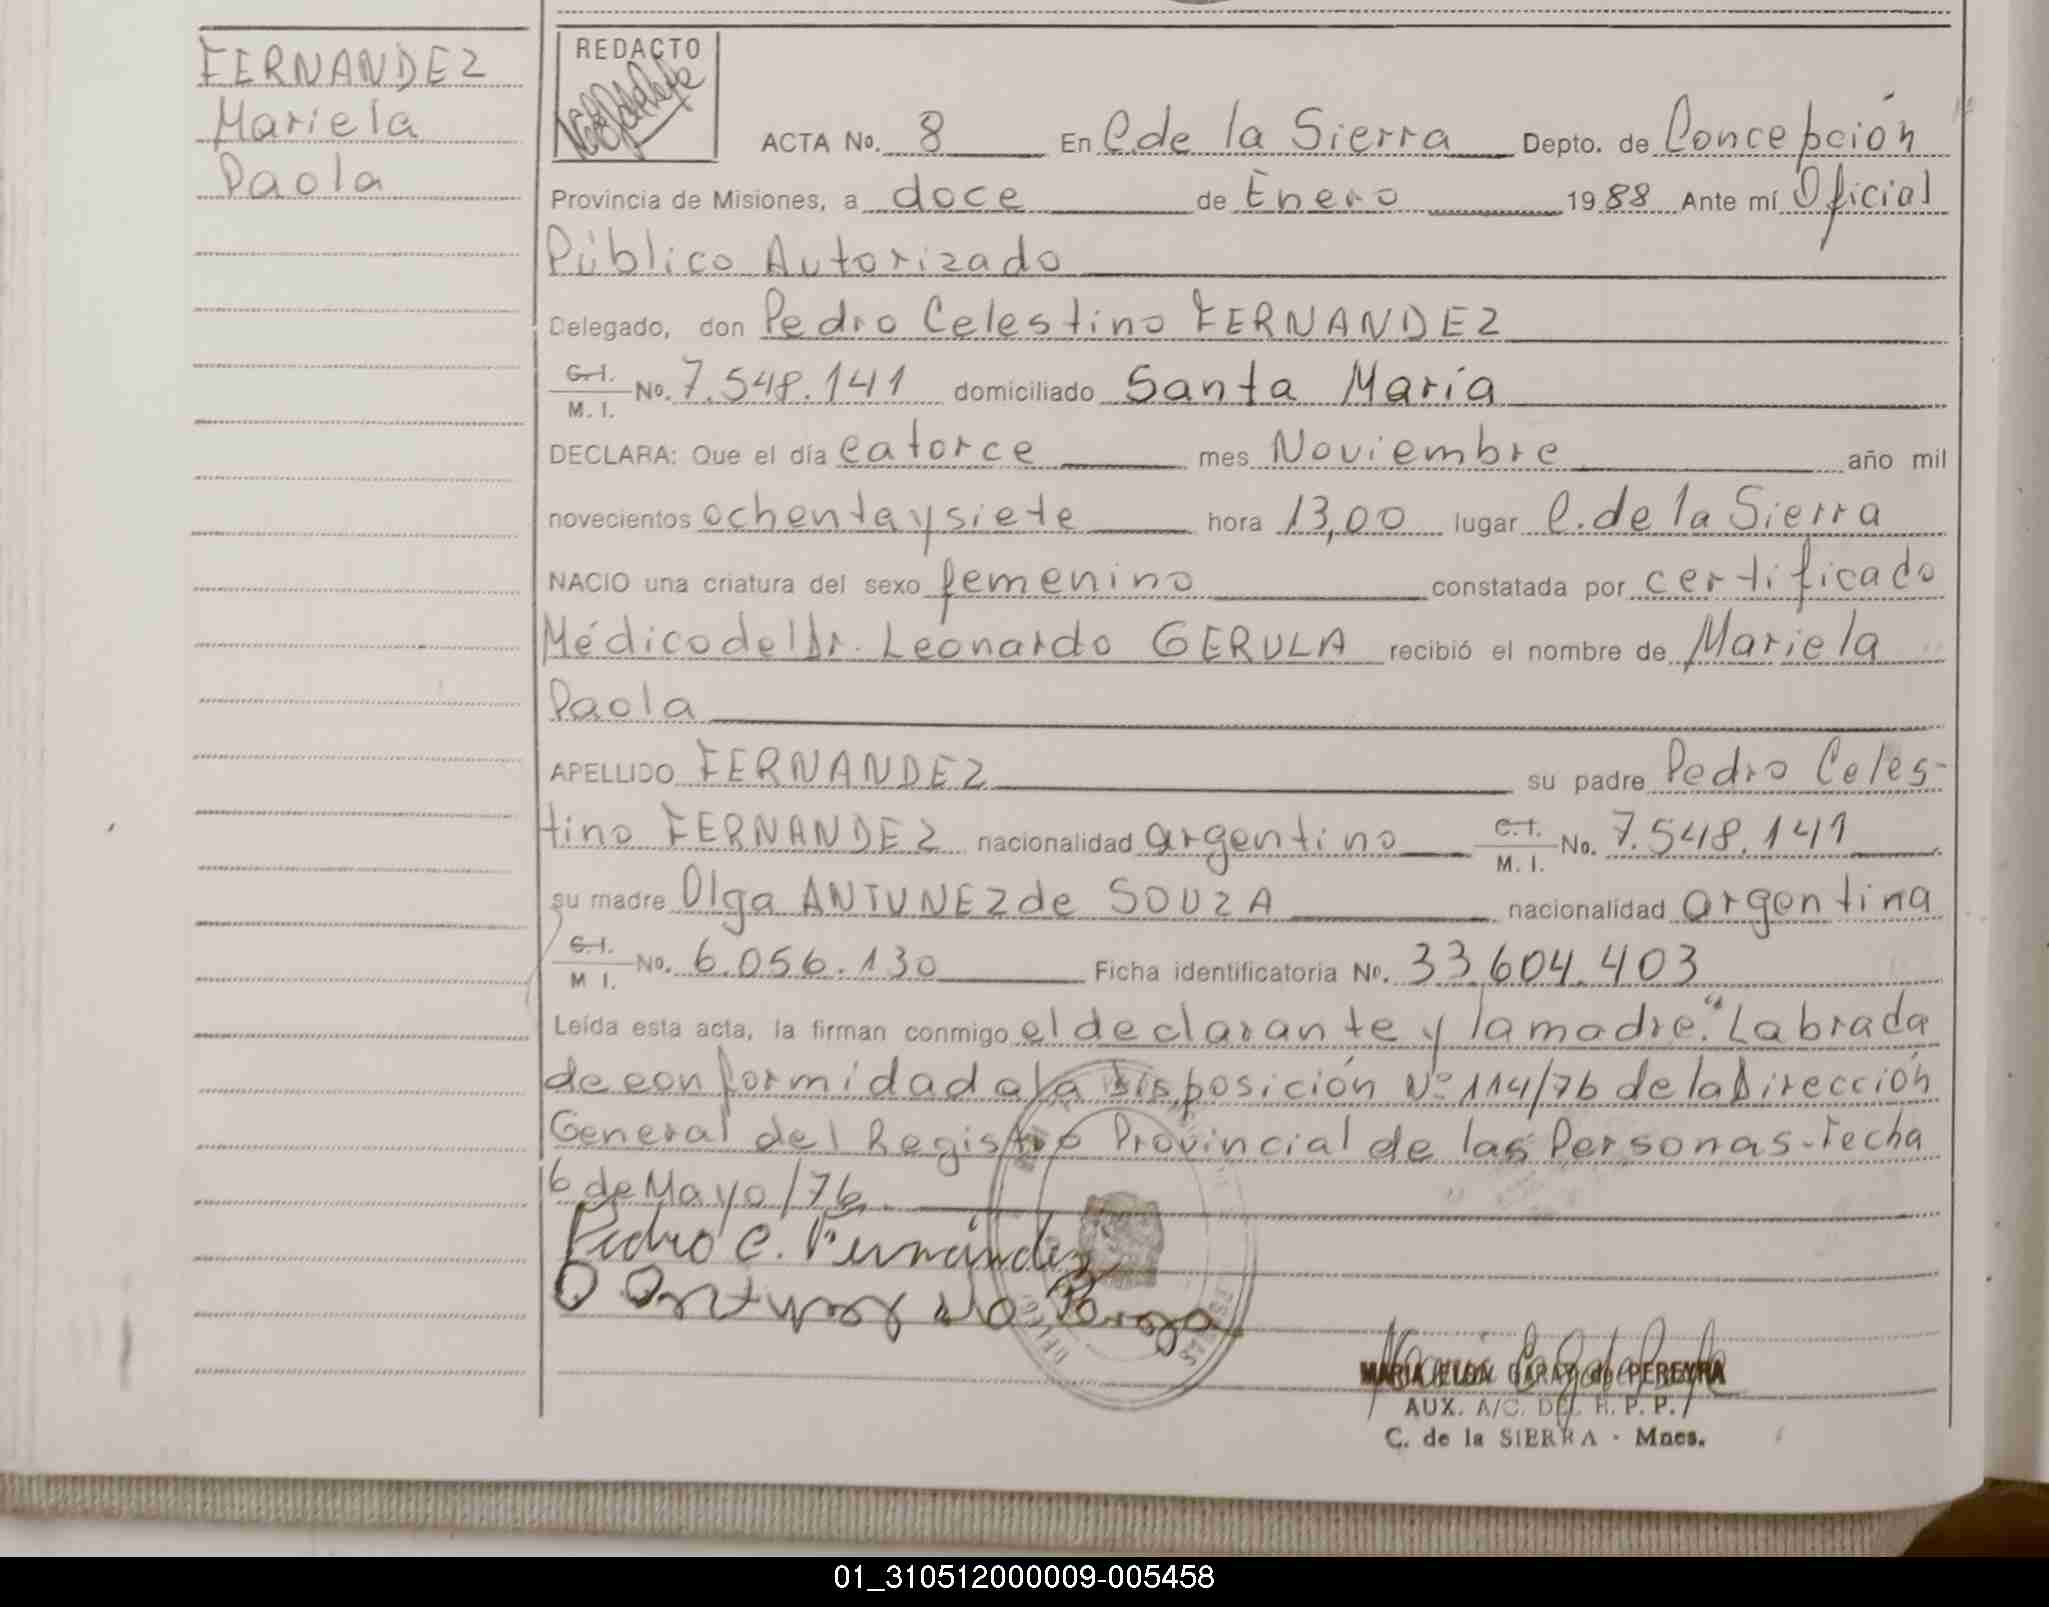 FERNANDEZ
Mariela
Paola
REDACTO
ACTA No. 8 En C. de la Sierra Depto. de Concepción
Provincia de Misiones, a doce de Enero 1988 Ante mí Oficial
Público Autorizado
Delegado, don Pedro Celestino FERNANDEZ
C.I. M. I. No. 7.548.141 domiciliado Santa María
DECLARA: Que el día catorce mes Noviembre año mil
novecientos ochenta y siete hora 13,00 lugar C. de la Sierra
NACIO una criatura del sexo femenino constatada por certificado
Médico del Dr. Leonardo GERULA recibió el nombre de Mariela
Paola
APELLIDO FERNANDEZ su padre Pedro Celes-
tino FERNANDEZ nacionalidad argentino C.I. M. I. No. 7.548.141
su madre Olga ANTUNEZ de SOUZA nacionalidad argentina
C.I. M I. No. 6.056.130 Ficha identificatoria No. 33.604.403
Leída esta acta, la firman conmigo el declarante y la madre. "Labrada
de conformidad a la Disposición Nº 114/76 de la Dirección
General del Registro Provincial de las Personas-Fecha
6 de Mayo/76.
Pedro C. Fernández
MARIA ELDA GARAY de PEREYRA
AUX. A/C. DEL R. P. P.
C. de la SIERRA - Mnes.
01_310512000009-005458